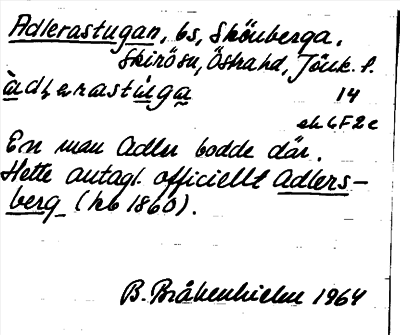 Adlerastugan, bs, Skönberga,
Skirö sn, Östra hd, Jönk. l.
14
ek 6F2c
En man Adler bodde där.
Hette antagl. officiellt Adlers-
berg (hb 1860).
B. Bråkenhielm 1964